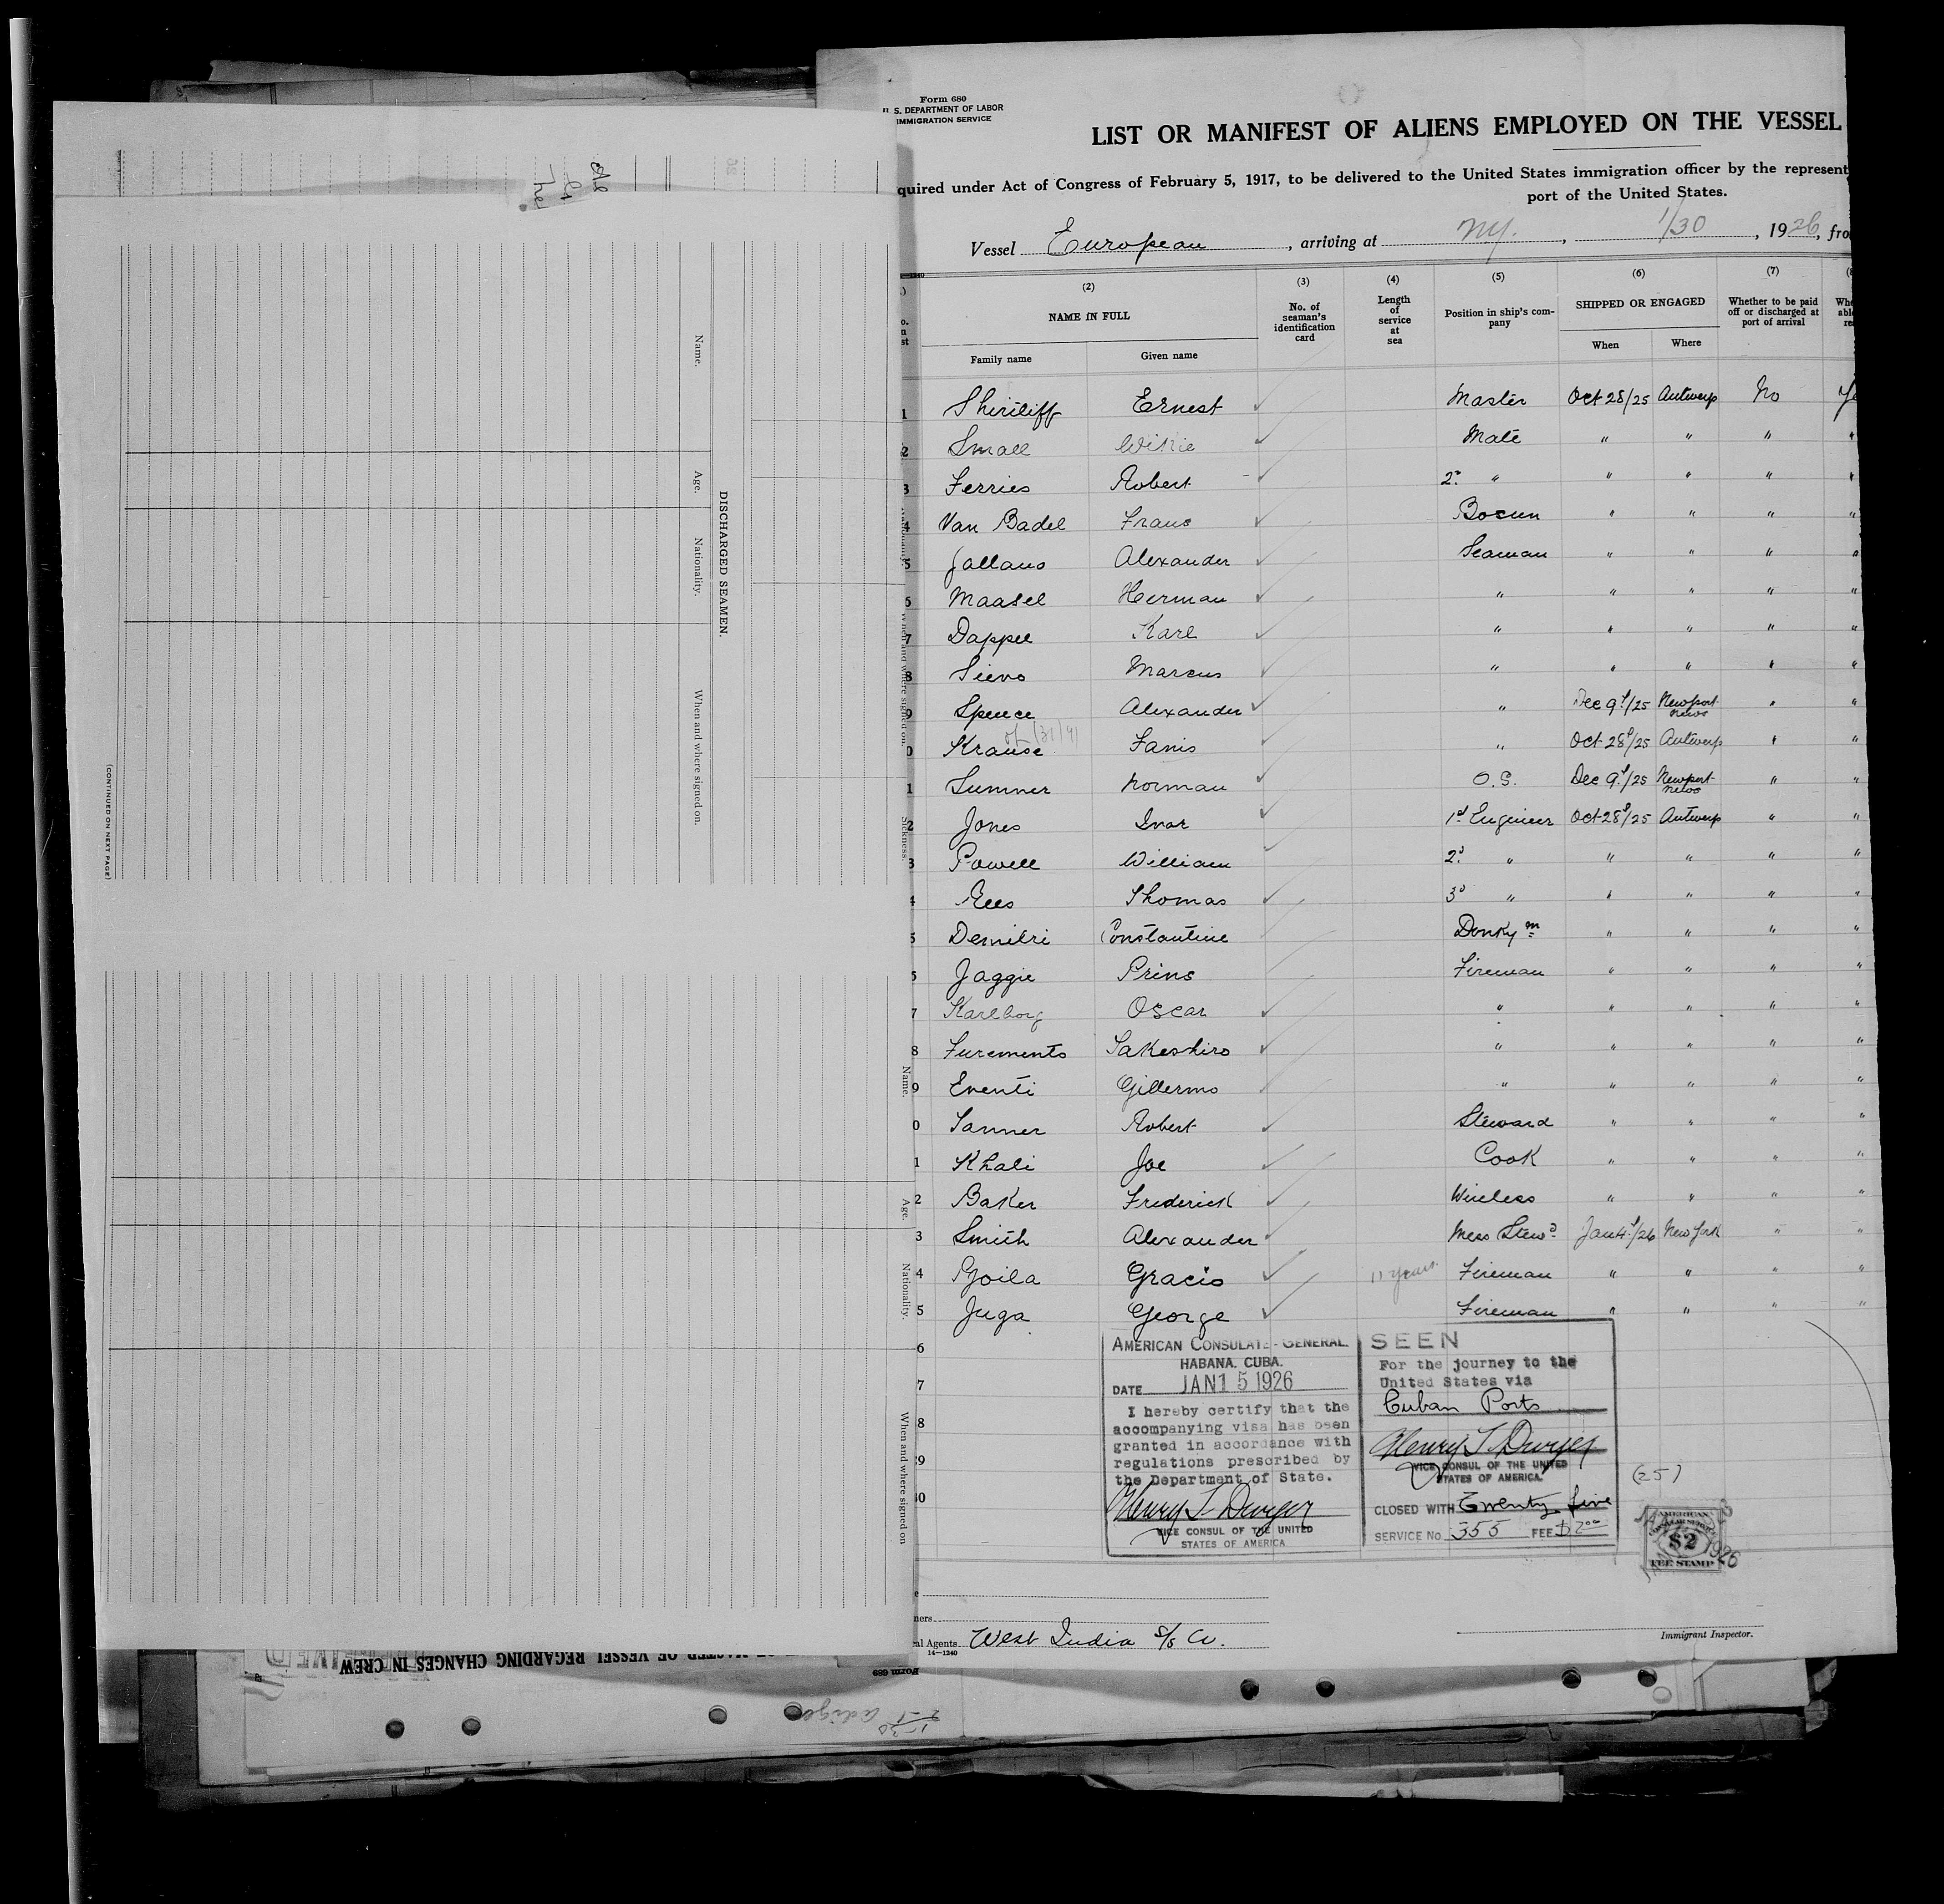 Form 680
U. S. DEPARTMENT OF LABOR
IMMIGRATION SERVICE
LIST OR MANIFEST OF ALIENS EMPLOYED ON THE VESSEL
quired under Act of Congress of February 5, 1917, to be delivered to the United States immigration officer by the represent
port of the United States.
Vessel European, arriving at N.Y., 1/30, 1926, fro
(2) (3) (4) (5) (6) (7)
NAME IN FULL
Family name Given name
No. of seaman's identification card
Length of service at sea
Position in ship's company
SHIPPED OR ENGAGED
When Where
Whether to be paid off or discharged at port of arrival
1 Ernest Master Oct 28/25 Antwerp No
2 Small Mate " " " "
3 Ferries Robert 2d " " " " "
4 Van Badel Frans Bosun " " " "
5 Jallans Alexander Seaman " " " "
6 Maasel Herman " " " " "
7 Dappel Karl " " " " "
8 Sievo Marcus " " " " "
9 Spence Alexander " Dec 9/25 Newport News " "
0 Krause Fanis " Oct 28/25 Antwerp " "
1 Sumner Norman O.S. Dec 9/25 Newport News " "
2 Jones Ivor 1st Engineer Oct 28/25 Antwerp " "
3 Powell William 2d " " " " "
4 Rees Thomas 3d " " " " "
5 Demitri Constantine Donkym " " " "
6 Jaggie Prins Fireman " " " "
7 Karlborg Oscar " " " " "
8 Furements Takeshiro " " " " "
9 Eventi Gillermo " " " " "
0 Tanner Robert Steward " " " "
1 Khali Joe Cook " " " "
2 Baker Frederick Wireless " " " "
3 Smith Alexander Mess Stewd Jan 4/26 New York " "
4 Gracio 11 years Fireman " " " "
5 Juga George Fireman " " " "
6
7
8
9
30
AMERICAN CONSULATE-GENERAL.
HABANA. CUBA.
DATE JAN 15 1926
I hereby certify that the
accompanying visa has been
granted in accordance with
regulations prescribed by
the Department of State.
Henry T. Dwyer
VICE CONSUL OF THE UNITED
STATES OF AMERICA
SEEN
For the journey to the
United States via
Cuban Ports
Henry T. Dwyer
VICE CONSUL OF THE UNITED
STATES OF AMERICA.
CLOSED WITH Twenty five
SERVICE No. 355 FEE $2.00
(25)
AMERICAN
CONSULAR SERVICE
$2
FEE STAMP
1926
al Agents West India S/S Co.
14—1240
Immigrant Inspector.
DISCHARGED SEAMEN.
Name.
Age.
Nationality.
When and where signed on.
(CONTINUED ON NEXT PAGE)
When and where signed on.
Sickness.
Name.
Age.
Nationality.
When and where signed on
OF MASTER OF VESSEL REGARDING CHANGES IN CREW
Form 689